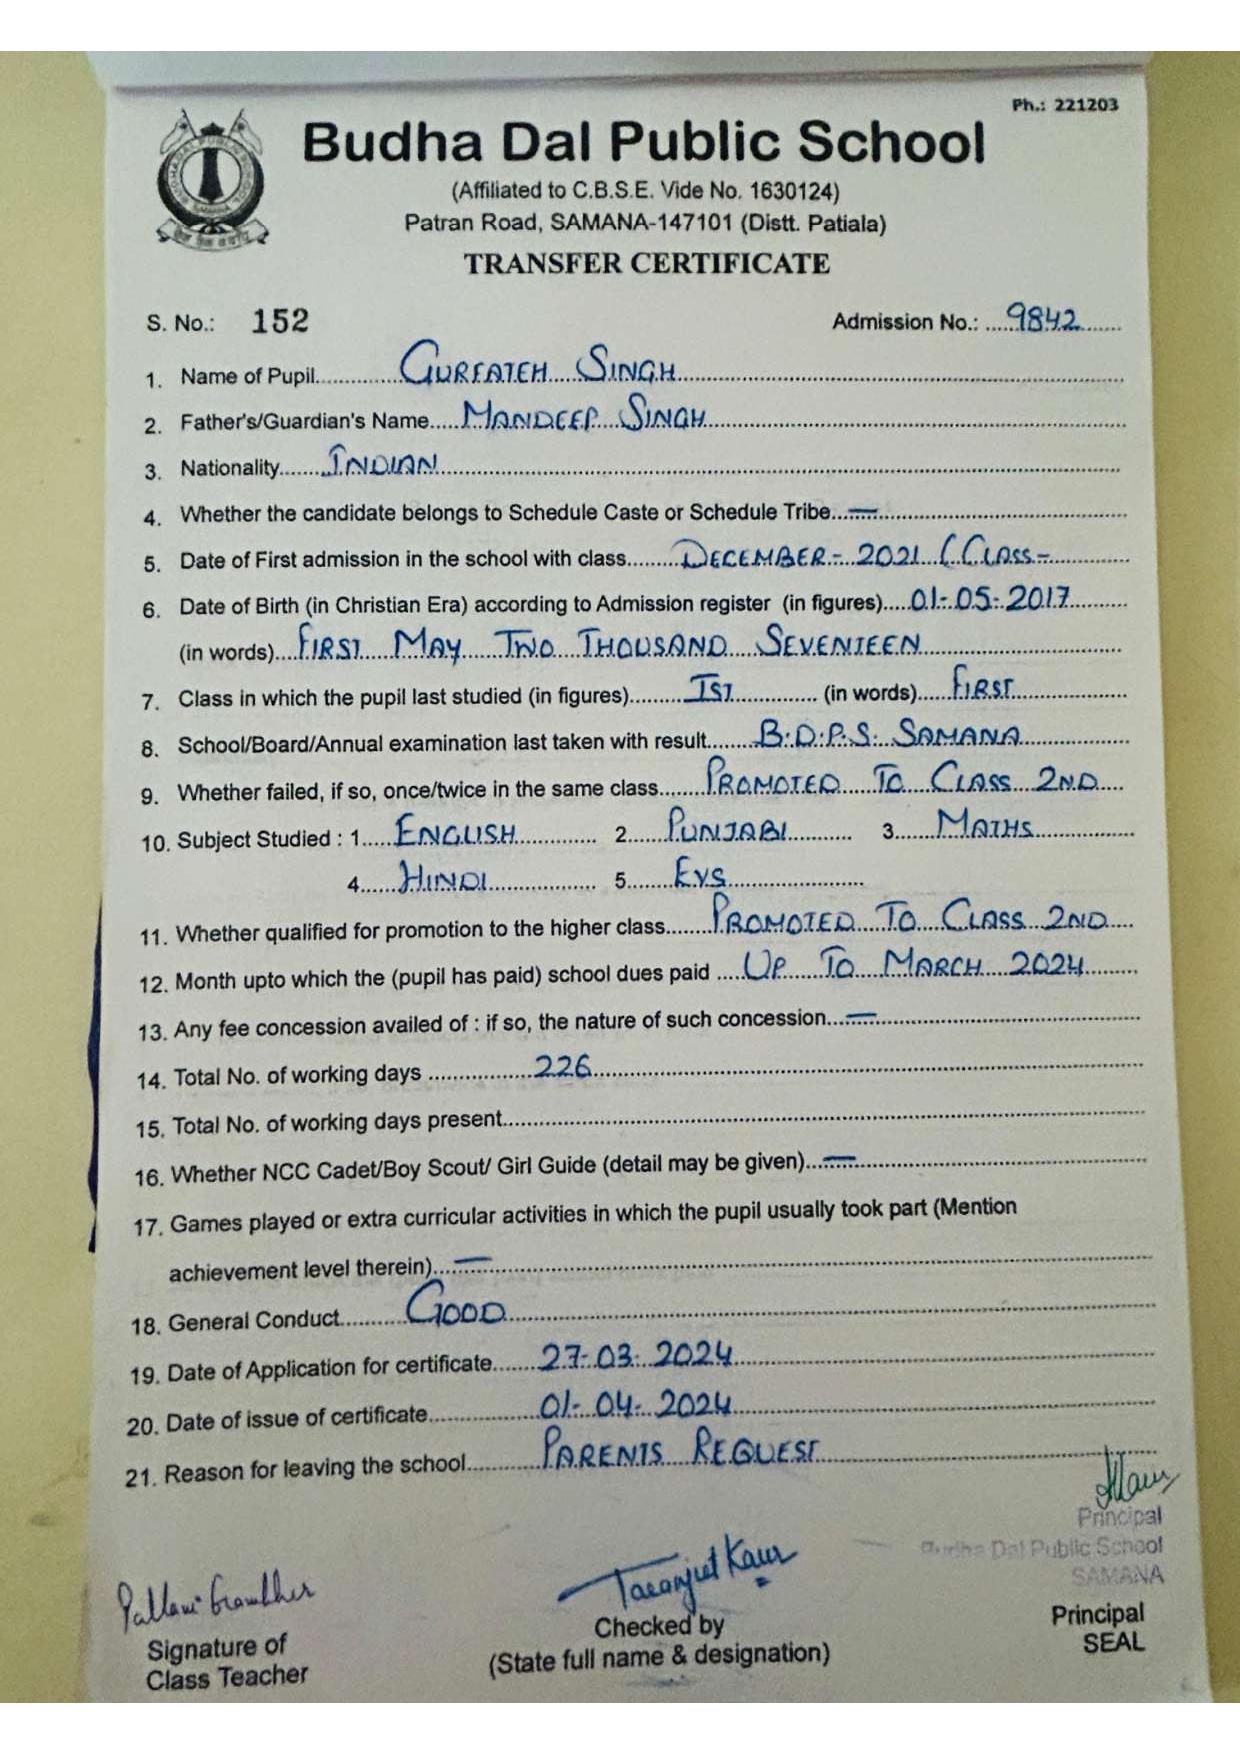 Ph.: 221203
Budha Dal Public School
(Affiliated to C.B.S.E. Vide No. 1630124)
Patran Road, SAMANA-147101 (Distt. Patiala)
TRANSFER CERTIFICATE
S. No.: 152 Admission No.: 9842
1. Name of Pupil GURFATEH SINGH
2. Father's/Guardian's Name MANDEEP SINGH
3. Nationality INDIAN
4. Whether the candidate belongs to Schedule Caste or Schedule Tribe —
5. Date of First admission in the school with class DECEMBER - 2021 (CLASS -
6. Date of Birth (in Christian Era) according to Admission register (in figures) 01-05-2017
(in words) FIRST MAY TWO THOUSAND SEVENTEEN
7. Class in which the pupil last studied (in figures) IST (in words) FIRST
8. School/Board/Annual examination last taken with result B.D.P.S. SAMANA
9. Whether failed, if so, once/twice in the same class PROMOTED TO CLASS 2ND
10. Subject Studied : 1. ENGLISH 2. PUNJABI 3. MATHS
4. HINDI 5. EVS
11. Whether qualified for promotion to the higher class PROMOTED TO CLASS 2ND
12. Month upto which the (pupil has paid) school dues paid UP TO MARCH 2024
13. Any fee concession availed of : if so, the nature of such concession —
14. Total No. of working days 226
15. Total No. of working days present
16. Whether NCC Cadet/Boy Scout/ Girl Guide (detail may be given) —
17. Games played or extra curricular activities in which the pupil usually took part (Mention
achievement level therein) —
18. General Conduct GOOD
19. Date of Application for certificate 27-03-2024
20. Date of issue of certificate 01-04-2024
21. Reason for leaving the school PARENTS REQUEST
Principal
Budha Dal Public School
SAMANA
Taranjeet Kaur
Signature of
Class Teacher
Checked by
(State full name & designation)
Principal
SEAL